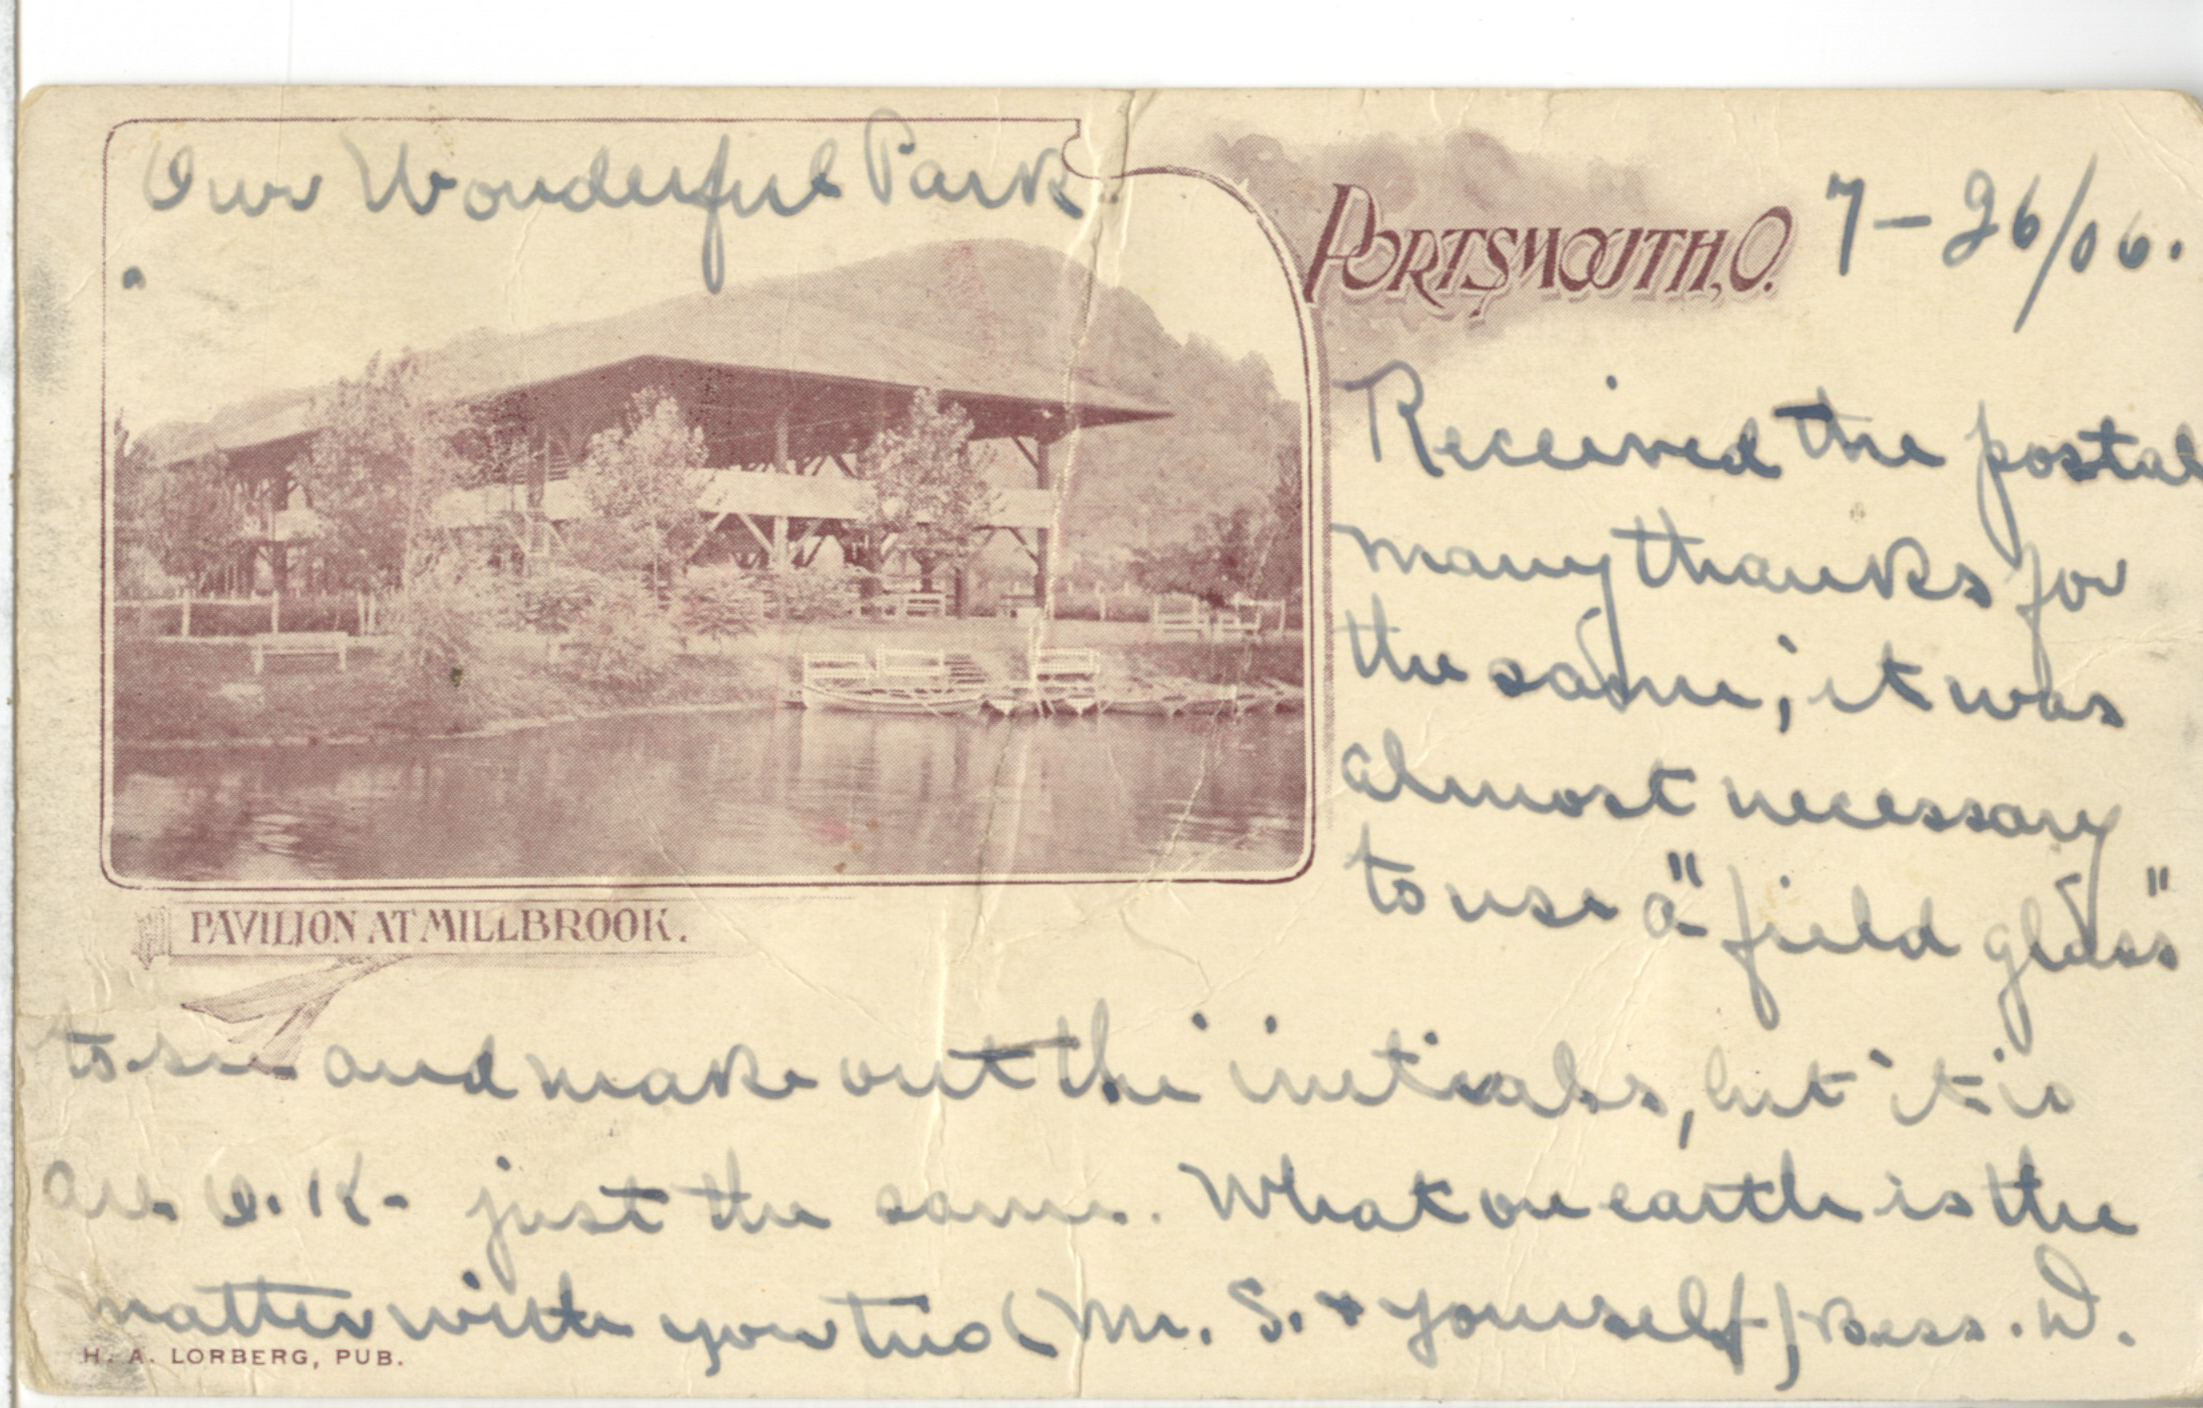 Our Wonderful Park
PORTSMOUTH, O.
7-26/06.
Received the postal
many thanks for
the same; it was
almost necessary
to use a "field glass"
PAVILION AT MILLBROOK.
to see and make out the initials, but it is
all O.K. just the same. What on earth is the
matter with you two (Mr. S. & yourself) Bess. W.
H. A. LORBERG, PUB.